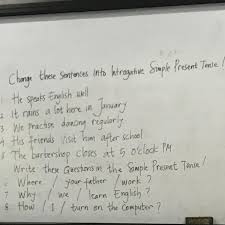 Change these Sentences into Introgative Simple Present Tense !
1 He speaks English well
2 It rains a lot here in January
3 We practise dancing regularly
4 His friends visit him after school
5 The barbershop closes at 5 o'clock PM
Write these Questions in the Simple Present Tense !
6 Where / your father / work ?
7 Why / we / learn English ?
8 How / I / turn on the Computer ?